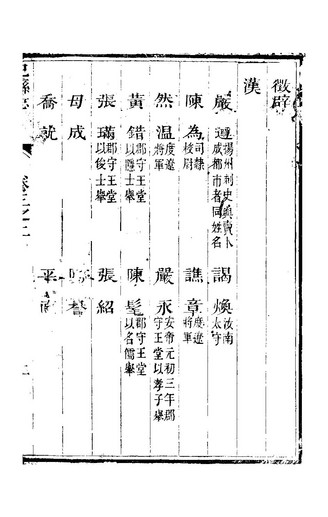 徵辟
漢
嚴遵揚州刺史與賣卜成都市者同姓名 謁煥汝南太守
陳為司隸校尉 譙章度遼將軍
然溫度遼將軍 嚴永安帝元初三年郡守王堂以孝子舉
黃錯郡守王堂以隱士舉 陳髦郡守王堂以名儒舉
張璊郡守王堂以俊士舉 張紹
母成
喬就